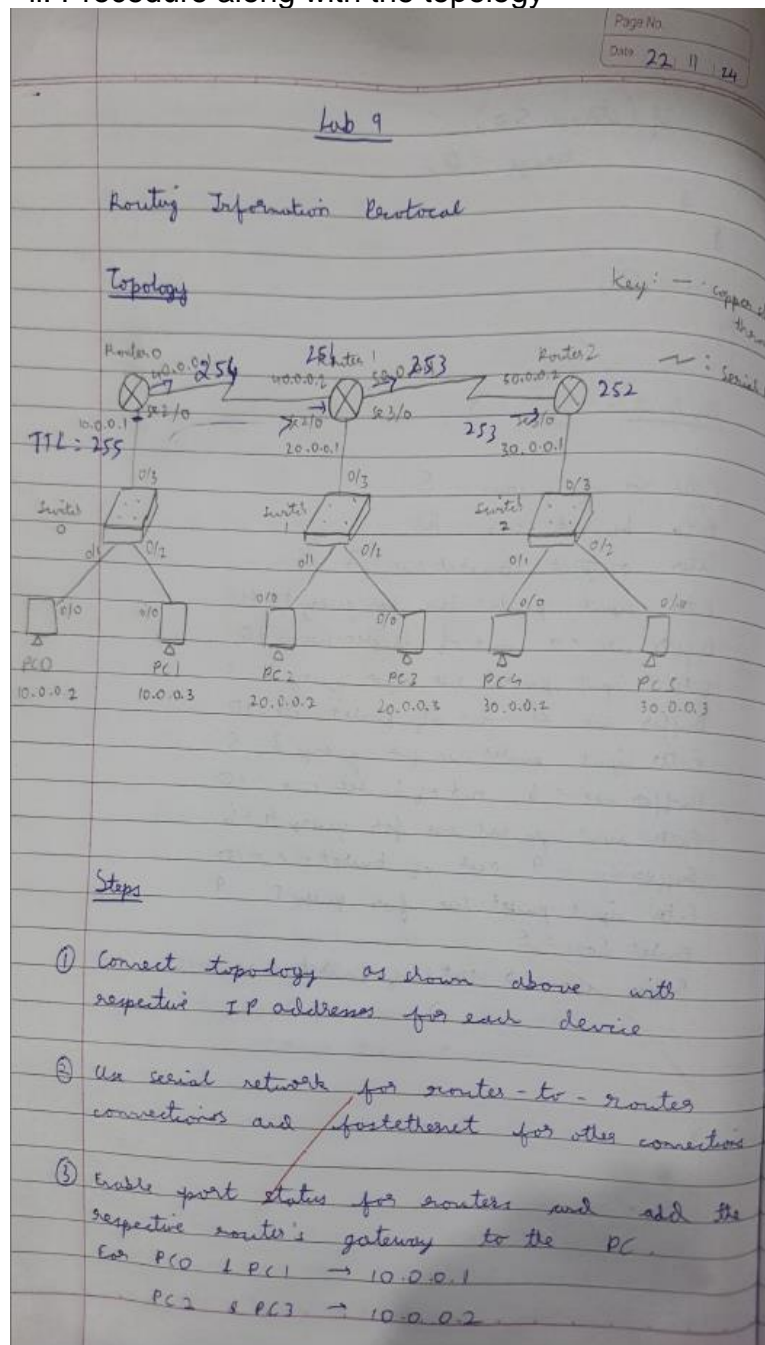 ii. Procedure along with the topology
Page No.
Date 22 11 24
Lab 9
Routing Information Protocal
Topology
Key: — : copper
: serial
Router 0
40.0.0.1
254
254
Router 1
40.0.0.2
253
Router 2
50.0.0.2
252
10.0.0.1
se2/0
se2/0
se3/0
253
se3/0
TTL: 255
20.0.0.1
30.0.0.1
0/3
0/3
0/3
Switch
0
Switch
1
Switch
2
0/1
0/2
0/1
0/2
0/1
0/2
0/0
0/0
0/0
0/0
0/0
0/0
PC0
PC1
PC2
PC3
PC4
PC5
10.0.0.2
10.0.0.3
20.0.0.2
20.0.0.3
30.0.0.2
30.0.0.3
Steps
① Connect topology as shown above with
respective IP addresses for each device
② Use serial network for router-to-router
connections and fastethernet for other connections
③ Enable port status for routers and add the
respective router's gateway to the PC.
For PC0 & PC1 → 10.0.0.1
PC2 & PC3 → 10.0.0.2